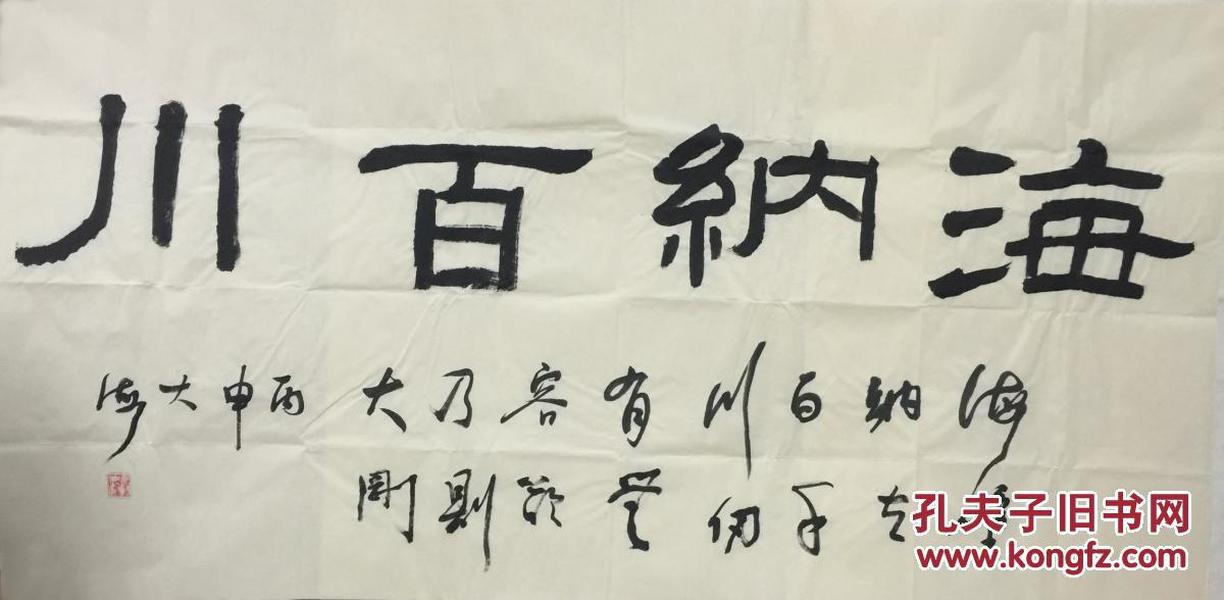 海納百川
海納百川有容乃大
立千仞無欲則剛
丙申大海
孔夫子旧书网
www.kongfz.com